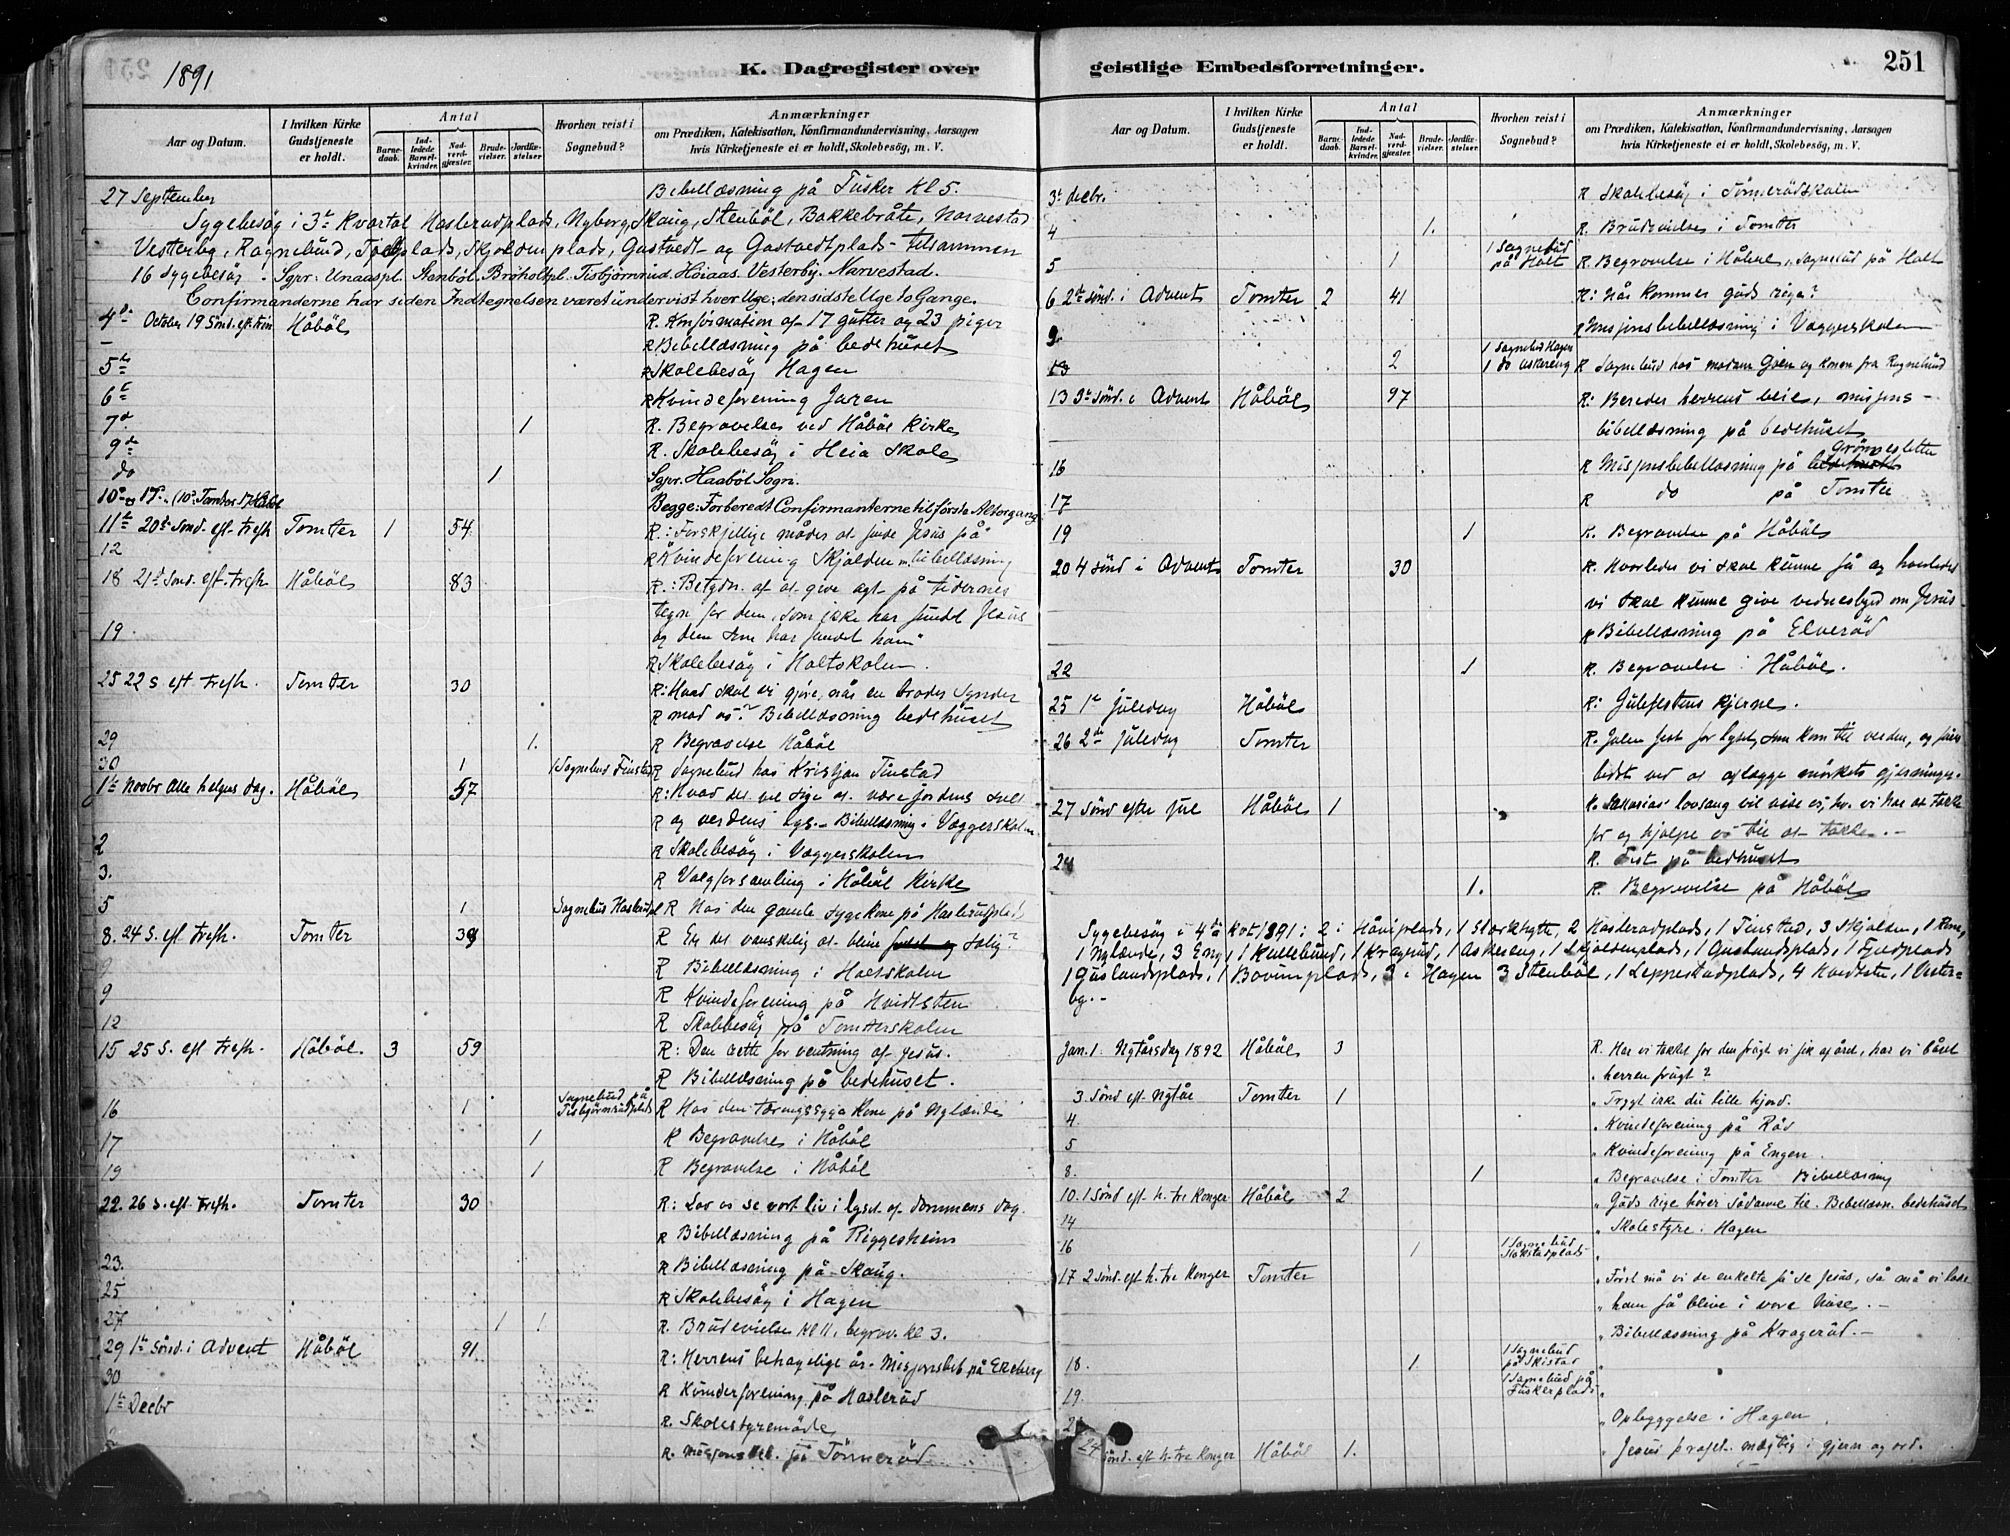 1891
K. Dagregister over
Aar og Datum.
I hvilken Kirke Gudstjeneste er holdt.
Antal
Barne-daab.
Ind-ledede Barsel-kvinder.
Nad-verd-gjæster.
Brude-vielser.
Jordfæ-stelser.
Hvorhen reist i Sognebud?
Anmærkninger
om Prædiken, Katekisation, Konfirmandundervisning, Aarsagen
hvis Kirketjeneste ei er holdt, Skolebesøg, m. V.
27 September Bibellæsning på Tusker Kl 5.
Sygebesøg i 3die Kvartal Haslerudplads, Nyborg, Skaug, Stenbøl, Bakkebråte, Narvestad
Vesterby, Ragnebund, Skjoldenplads, Gaslvedt og Gaslvedtplads - tilsammen
16 sygebesøg - Sgpr: Unaaspl. Stenbøl. Brøholtpl. Tisbjørnrud. Hoiaas. Vesterby. Narvestad.
Confirmanderne har siden Indtegnelsen været undervist hver Uge; den sidste Uge to Gange.
4de October 19 Sønd. eft. trin Håbøl R. Konfirmation af 17 gutter og 23 piger
R Bibellæsning på bedehuset
5te R Skolebesøg Hagen
6te R Kvindeforening Jaren
7de 1 R. Begravelse ved Håbøl Kirke
9de R. Skolebesøg i Heia Skole
do 1 Sgpr. Haabøl Sogn.
Begge: Forberedt Confirmanterne til første Altergang
11te 20de Sønd. eft. trefh Tomter 1 54 R.: Forskjellige måder at finde Jesus på
12 R Kvindeforening Skjolden m. bibellæsning
18 21de Sønd. eft. trefh. Håbøl 83 R.: Betydn. af at give agt på tidernes
tegn for dem, som ikke har fundet Jesus
19. og dem som har fundet ham"
R Skolebesøg i Holtskolen.
25 22 S eft trefh. Tomter 30 R: Hvad skal vi gjøre, når en broder synder
R mod os? Bibellæsning bedehuset
29 1. R Begravelse Håbøl
30 1 1 Sognebud Finstad R Sognebud hos Kristjan Finstad
1te Novbr Alle helgens dag. Håbøl 57 R: Hvad det vil sige at være jordens salt
R og verdens lys. - Bibellæsning i Vaggerskolen
2 R Skolebesøg i Vaggerskolen
3. R Valgforsamling i Håbøl Kirke
5 1 R Hos den gamle syge kone på Haslerudplads
8. 24 S. eft trefh. Tomter R Er det vanskelig at blive salig?
R Bibellæsning i Holtskolen
9 R Kvindeforening på Hvidtsten
12 R Skolebesøg på Tomterskolen
15 25 S. eft trefh. Håbøl 3 59 R: Den rette forventning af Jesus.
R Bibellæsning på bedehuset.
16 1 Sognebud på Tisbjørnrudplads R Hos den tæringssyge kone på Nylænde
17 1 R Begravelse i Håbøl
19 1 R Begravelse i Håbøl
22. 26 S. eft. trefh. Tomter 30 R: Lad os se vort liv i lyset af dommens dag.
R Bibellæsning på Riggesheim
23. R Bibellæsning på Skaug.
25 R Skolebesøg i Hagen
27 1 1 R. Brudevielse kl 11, begrav. kl 3.
29 1te Sønd. i Advent Håbøl 91 R: Herrens behagelige år - Misjonsbib på Ekeberg
30 R Kvindeforening på Haslerud
1te Decbr R. Skolestyremøde
R. Misjonsbib. på Tømmeråd
geistlige Embedsforretninger.
251
Aar og Datum.
I hvilken Kirke Gudstjeneste er holdt.
Antal
Barne-daab.
Ind-ledede Barsel-kvinder.
Nad-verd-gjæster.
Brude-vielser.
Jordfæ-stelser.
Hvorhen reist i Sognebud?
Anmærkninger
om Prædiken, Katekisation, Konfirmandundervisning, Aarsagen
hvis Kirketjeneste ei er holdt, Skolebesøg, m. V.
3die decbr. R Skolebesøg i Tømmerådskolen
4 1. R. Brudevielse i Tomter
5 1 1 Sognebud på Holt R. Begravelse i Håbøl, Sognebud på Holt
6 2den Sønd. i Advent Tomter 2 41 R: Når kommer guds rige?
9. R Misjonsbibellæsning i Vaggerskolen
2 1 Sognebud Hagen 1 do Askereng R Sognebud hos madam Goen og konen fra Ragnebund
13 3die Sønd. i Advent Håbøl 97 R: Bereder herrens veie, misjons-
bibellæsning på bedehuset
16 R Misjonsbibellæsning på Grønnesletten
17 R do på Tomter
19 1 R. Begravelse på Håbøl
20 4 Sønd i Advent Tomter 30 R. Hvorledes vi skal kunne få og hvorledes
vi skal kunne give vidnesbyrd om Jesus
R Bibellæsning på Elveråd
22 1 R. Begravelse i Håbøl.
25 1te Juledag Håbøl R: Julefestens kjerne.
26 2den Juledag Tomter R. Julen fest for lyset, som kom til verden, og feires
bedst ved at aflægge mørkets gjerninger.
27 Sønd efter Jul Håbøl 1 R. Sakarias' lovsang vil vise os, hv. vi har at takke
for og hjælpe os til at takke. -
R. Fest på bedhuset
1. R. Begravelse på Håbøl
Sygebesøg i 4de Kvt 1891: 2 i Håviplads, 1 Slorkhytte, 2 Haslerudplads, 1 Finstad, 3 Skjolden,
1 Nylænde, 3 Eng, 1 Kullebund, 1 Kragrud, 1 Askereng, 1 Skjoldenplads, 1 Guslundsplads, 1
1 Guslandsplads, 1 Bovimplads, 3 i Hagen 3 Stenbøl, 1 Leppestadplads, 4 Hvidsten, 1 Vester-
by. -
Jan. 1. Nytårsdag 1892 Håbøl 3 R. Har vi takket for den frugt vi fik af året, har vi båret
" herren frugt?
3 Sønd eft. Nytår Tomter 1 " Frygt ikke du lille hjord.
4. " Kvindeforening på Råd
5 " Kvindeforening på Engen.
8. 1 " Begravelse i Tomter Bibellæsning
10. 1 Sønd eft h. tre Konger Håbøl 2 " Guds rige hører sådanne til. Bibellæsn. bedehuset
14 " Skolestyre. Hagen
16 1 1 Sognebud "
17 2 Sønd. eft h. tre Konger Tomter " Først må vi de enkelte få se Jesus, så må vi lade
" ham få blive i vore huse. -
" Bibellæsning på Krageråd. -
18. 1 1 Sognebud på Skistad "
19. 1 Sognebud på Tuskerplads "
" Opbyggelse i Hagen
24 Sønd. eft h. tre Konger Håbøl 1. " Jesus profet. mægtig i gjern og ord.